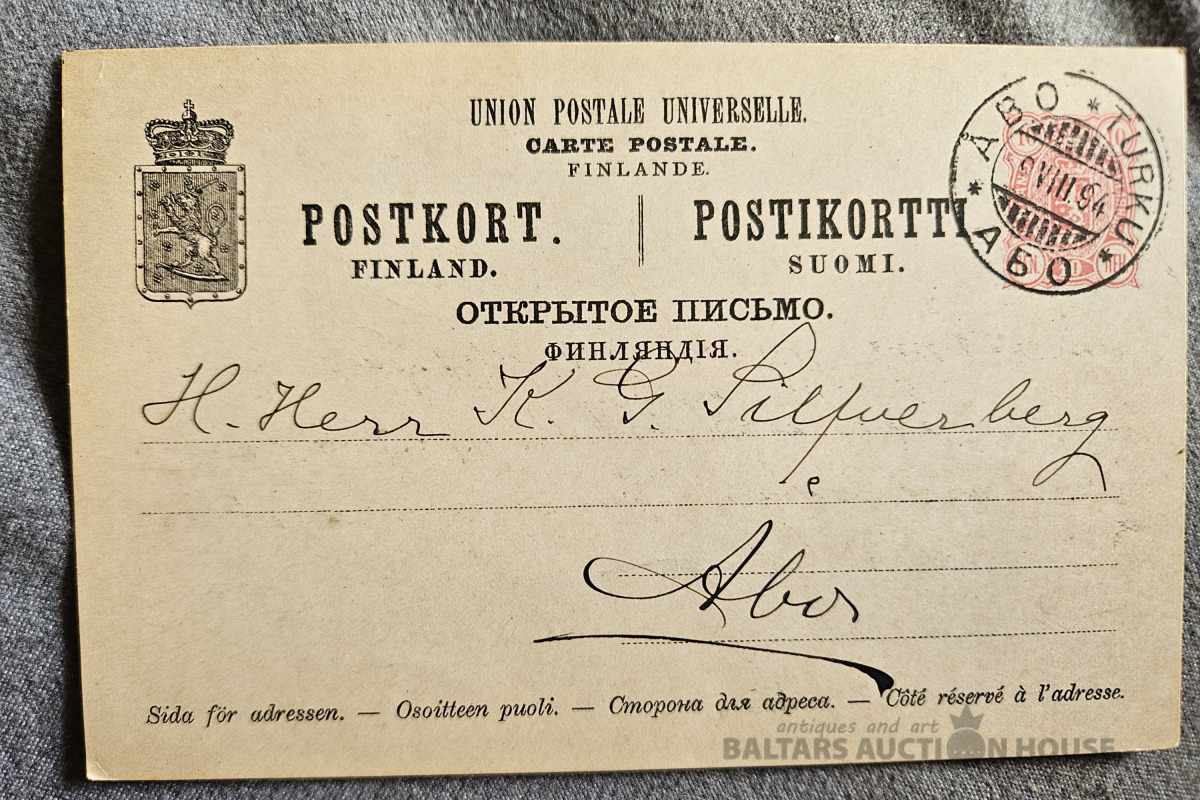 UNION POSTALE UNIVERSELLE.
CARTE POSTALE.
FINLANDE.
POSTKORT. | POSTIKORTTI
FINLAND. SUOMI.
ОТКРЫТОЕ ПИСЬМО.
ФИНЛЯНДІЯ.
* ÅBO * TURKU * АБО
VIII.94
H. Herr K. G. Silfverberg
Åbo
Sida för adressen. — Osoitteen puoli. — Сторона для адреса. — Côté réservé à l'adresse.
antiques and art
BALTARS AUCTION HOUSE